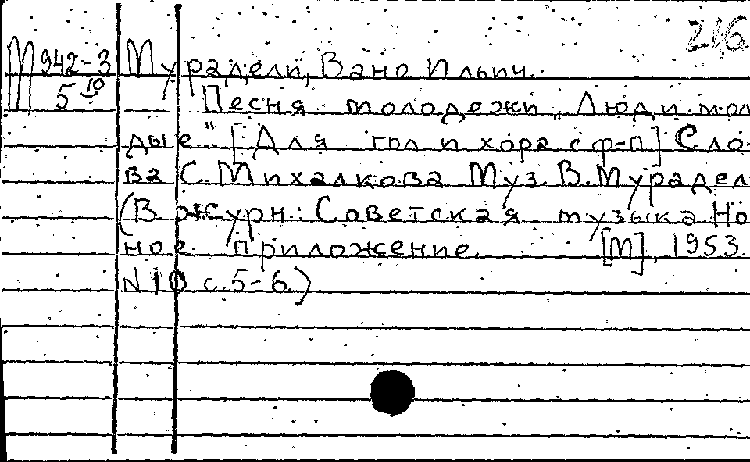 216
М 942-3 Мурадели, Вано Ильич.
5 10 Песня молодежи „Люди мол
дые" [Для гол и хора с ф-п] Сло
ва С. Михалкова Муз. В. Мурадел
(В журн.: Советская музыка Но
ное приложение. [М], 1953.
N10 с. 5-6.)